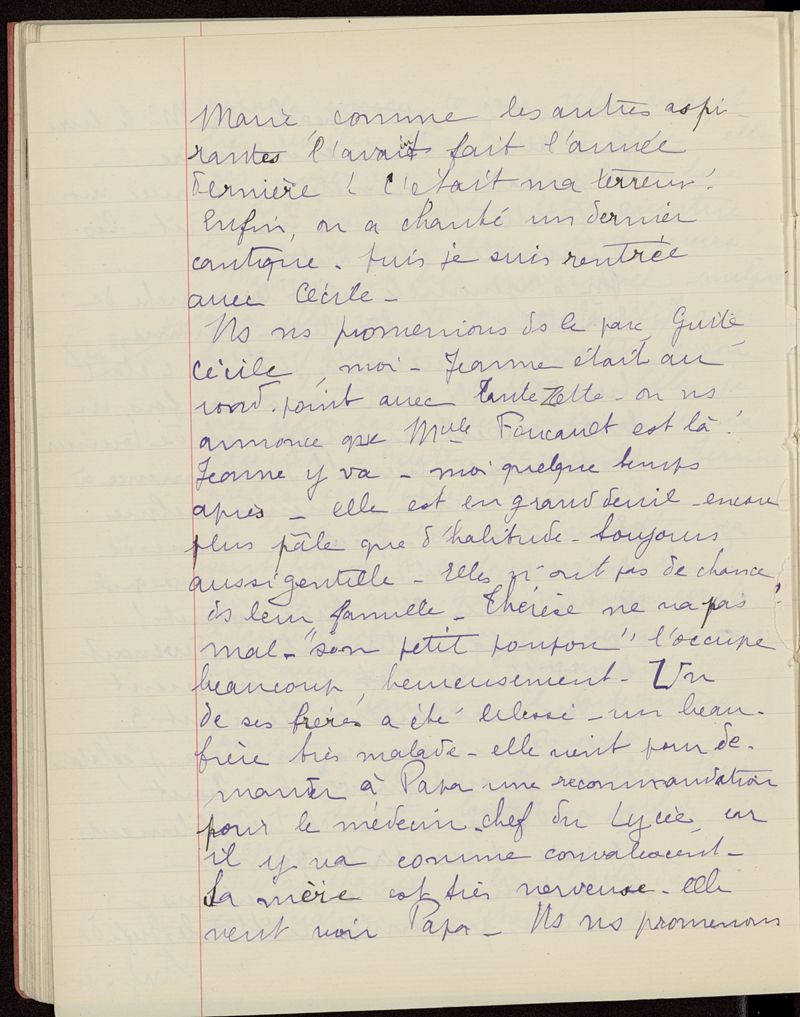 Marie, comme les autres aspi-
rantes l'avaient fait l'année
dernière ! C'était ma terreur !
Enfin, on a chanté un dernier
cantique - puis je suis rentrée
avec Cécile -
Ns ns promenions ds le parc, Guite,
Cécile, moi - Jeanne était au
rond-point avec Tante Zette - on ns
annonce que Melle Foucault est là !
Jeanne y va - moi quelque temps
après - elle est en grand deuil - encore
plus pâle que d'habitude - toujours
aussi gentille - Elles n'ont pas de chance
ds leur famille - Thérèse ne va pas
mal - "son petit poupon" l'occupe
beaucoup, heureusement - Un
de ses frères a été blessé - un beau-
frère très malade - elle vient pour de-
mander à Papa une recommandation
pour le médecin-chef du Lycée, car
il y va comme convalescent -
Sa mère est très nerveuse - elle
veut voir Papa - Ns ns promenons